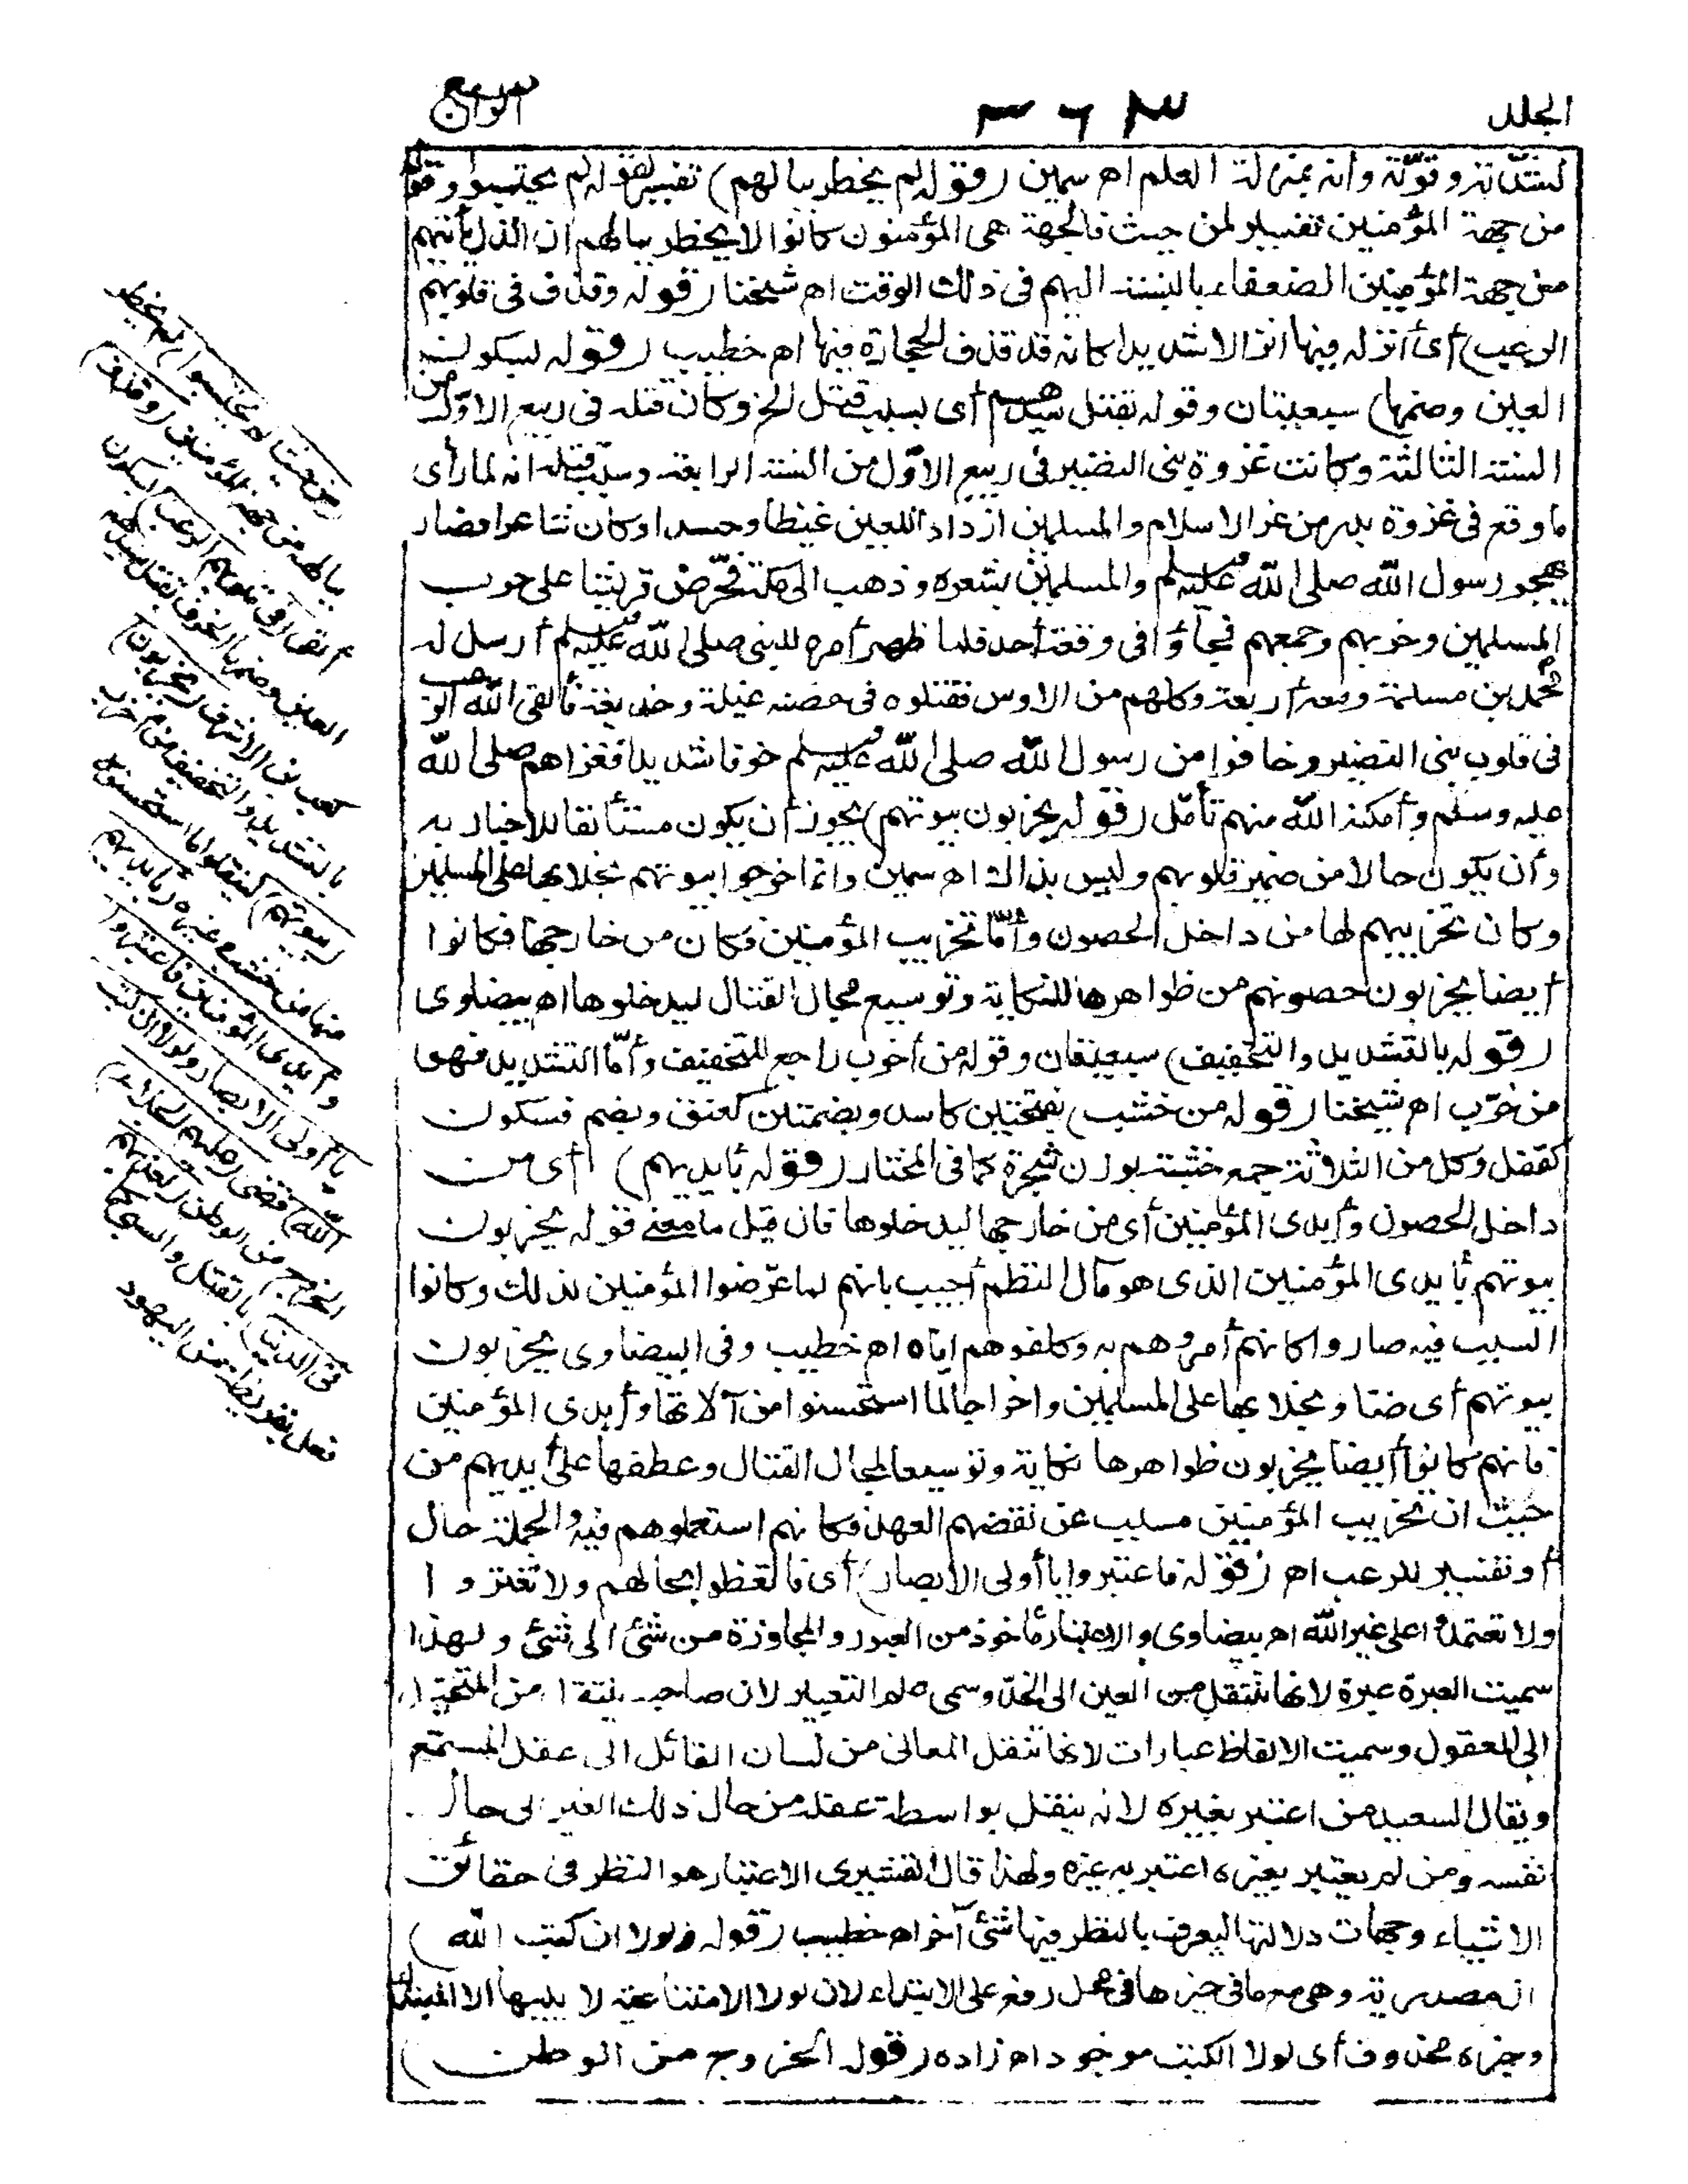 الجلد
٣٦٣
الرابع
لشدّته وقوّته وأنه بمنزلة العلم اه سمين (قوله لم يخطر ببالهم) تفسير لقوله لم يحتسبوا وقوله
من جهة المؤمنين تفسير لمن حيث فالجهة هى المؤمنون كانوا لا يخطر ببالهم ان الذل يأتيهم
من جهة المؤمنين الضعفاء بالنسبة اليهم فى ذلك الوقت اه شيخنا (قوله وقذف فى قلوبهم
الرعب) أى أنزله فيها انزالا شديدا كانه قد قذف الحجارة فيها اه خطيب (قوله بسكون
العين وضمها) سبعيتان وقوله بقتل سيدهم أى بسبب قتل الخ وكان قتله فى ربيع الاوّل من
السنة الثالثة وكانت غزوة بنى النضير فى ربيع الاوّل من السنة الرابعة وسبب قتله انه لما رأى
ما وقع فى غزوة بدر من عز الاسلام والمسلمين ازداد اللعين غيظا وحسدا وكان شاعرا فصار
يهجو رسول الله صلى الله عليه وسلم والمسلمين بشعره وذهب الى مكة فحرّض قريشا على حرب
المسلمين وحزبهم وجمعهم فجاؤا فى وقعة أحد فلما ظهر أمره للنبى صلى الله عليه وسلم أرسل له
محمد بن مسلمة ومعه أربعة وكلهم من الاوس فقتلوه فى حصنه غيلة وخديعة فألقى الله الرعب
فى قلوب بنى النضير وخافوا من رسول الله صلى الله عليه وسلم خوفا شديدا فغزاهم صلى الله
عليه وسلم وأمكنه الله منهم تأمّل (قوله يخربون بيوتهم) يجوز أن يكون مستأنفا للاخبار به
وأن يكون حالا من ضمير قلوبهم وليس بذاك اه سمين وانما خرجوا بيوتهم بخلا بها على المسلمين
وكان تخريبهم لها من داخل الحصون وأمّا تخريب المؤمنين فكان من خارجها فكانوا
أيضا يخربون حصونهم من ظواهرها للنكاية وتوسيع مجال القتال ليدخلوها اه بيضاوى
(قوله بالتشديد والتخفيف) سبعيتان وقوله من أخرب راجع للتخفيف وأمّا التشديد فهو
من خرّب اه شيخنا (قوله من خشب) بفتحتين كاسد وبضمتين كعنق وبضم فسكون
كقفل وكل من الثلاثة جمع خشبة بوزن شجرة كما فى المختار (قوله بأيديهم) أى من
داخل الحصون وأيدى المؤمنين أى من خارجها ليدخلوها فان قيل ما معنى قوله يخربون
بيوتهم بأيدى المؤمنين الذى هو مآل النظم أجيب بانهم لما عرّضوا المؤمنين لذلك وكانوا
السبب فيه صاروا كانهم أمروهم به وكلفوهم اياه اه خطيب وفى البيضاوى يخربون
بيوتهم أى ضنا وبخلا بها على المسلمين واخراجا لما استحسنوا من آلاتها وأيدى المؤمنين
فانهم كانوا أيضا يخربون ظواهرها نكاية وتوسيعا لمجال القتال وعطفها على أيديهم من
حيث ان تخريب المؤمنين مسبب عن نقضهم العهد فكانهم استعملوهم فيه والجملة حال
أو تفسير للرعب اه (قوله فاعتبروا يا أولى الابصار) أى فاتعظوا بحالهم ولا تغتروا
ولا تعتمدوا على غير الله اه بيضاوى والاعتبار مأخوذ من العبور والمجاوزة من شئ الى شئ ولهذا
سميت العبرة عبرة لانها تنتقل من العين الى الخدّ وسمى علم التعبير لان صاحبه ينتقل من المتخيل
الى المعقول وسميت الالفاظ عبارات لانها تنقل المعانى من لسان القائل الى عقل المستمع
ويقال السعيد من اعتبر بغيره لانه ينقل بواسطة عقله من حال ذلك الغير الى حال
نفسه ومن لم يعتبر بغيره اعتبر به غيره ولهذا قال القشيرى الاعتبار هو النظر فى حقائق
الاشياء وجهات دلالتها ليعرف بالنظر فيها شئ آخر اه خطيب (قوله ولولا ان كتب الله)
ان مصدرية وهى مع ما فى حيزها فى محل رفع على الابتداء لان لولا الامتناعية لا يليها الا المبتدأ
وخبره محذوف أى لولا الكتب موجود اه زاده (قوله الخروج من الوطن)
من حيث لم يحتسبوا) لم يخطر
ببالهم من جهة المؤمنين (وقذف)
ألقى (فى قلوبهم الرعب) بسكون
العين وضمها الخوف بقتل سيدهم
كعب بن الاشرف (يخربون)
بالتشديد والتخفيف من أخرب
(بيوتهم) لينقلوا ما استحسنوه
منها من خشب وغيره (بأيديهم
وأيدى المؤمنين فاعتبروا
يا أولى الابصار ولولا ان كتب
الله) قضى (عليهم الجلاء)
الخروج من الوطن (لعذبهم
فى الدنيا) بالقتل والسبى كما
فعل بقريظة من اليهود